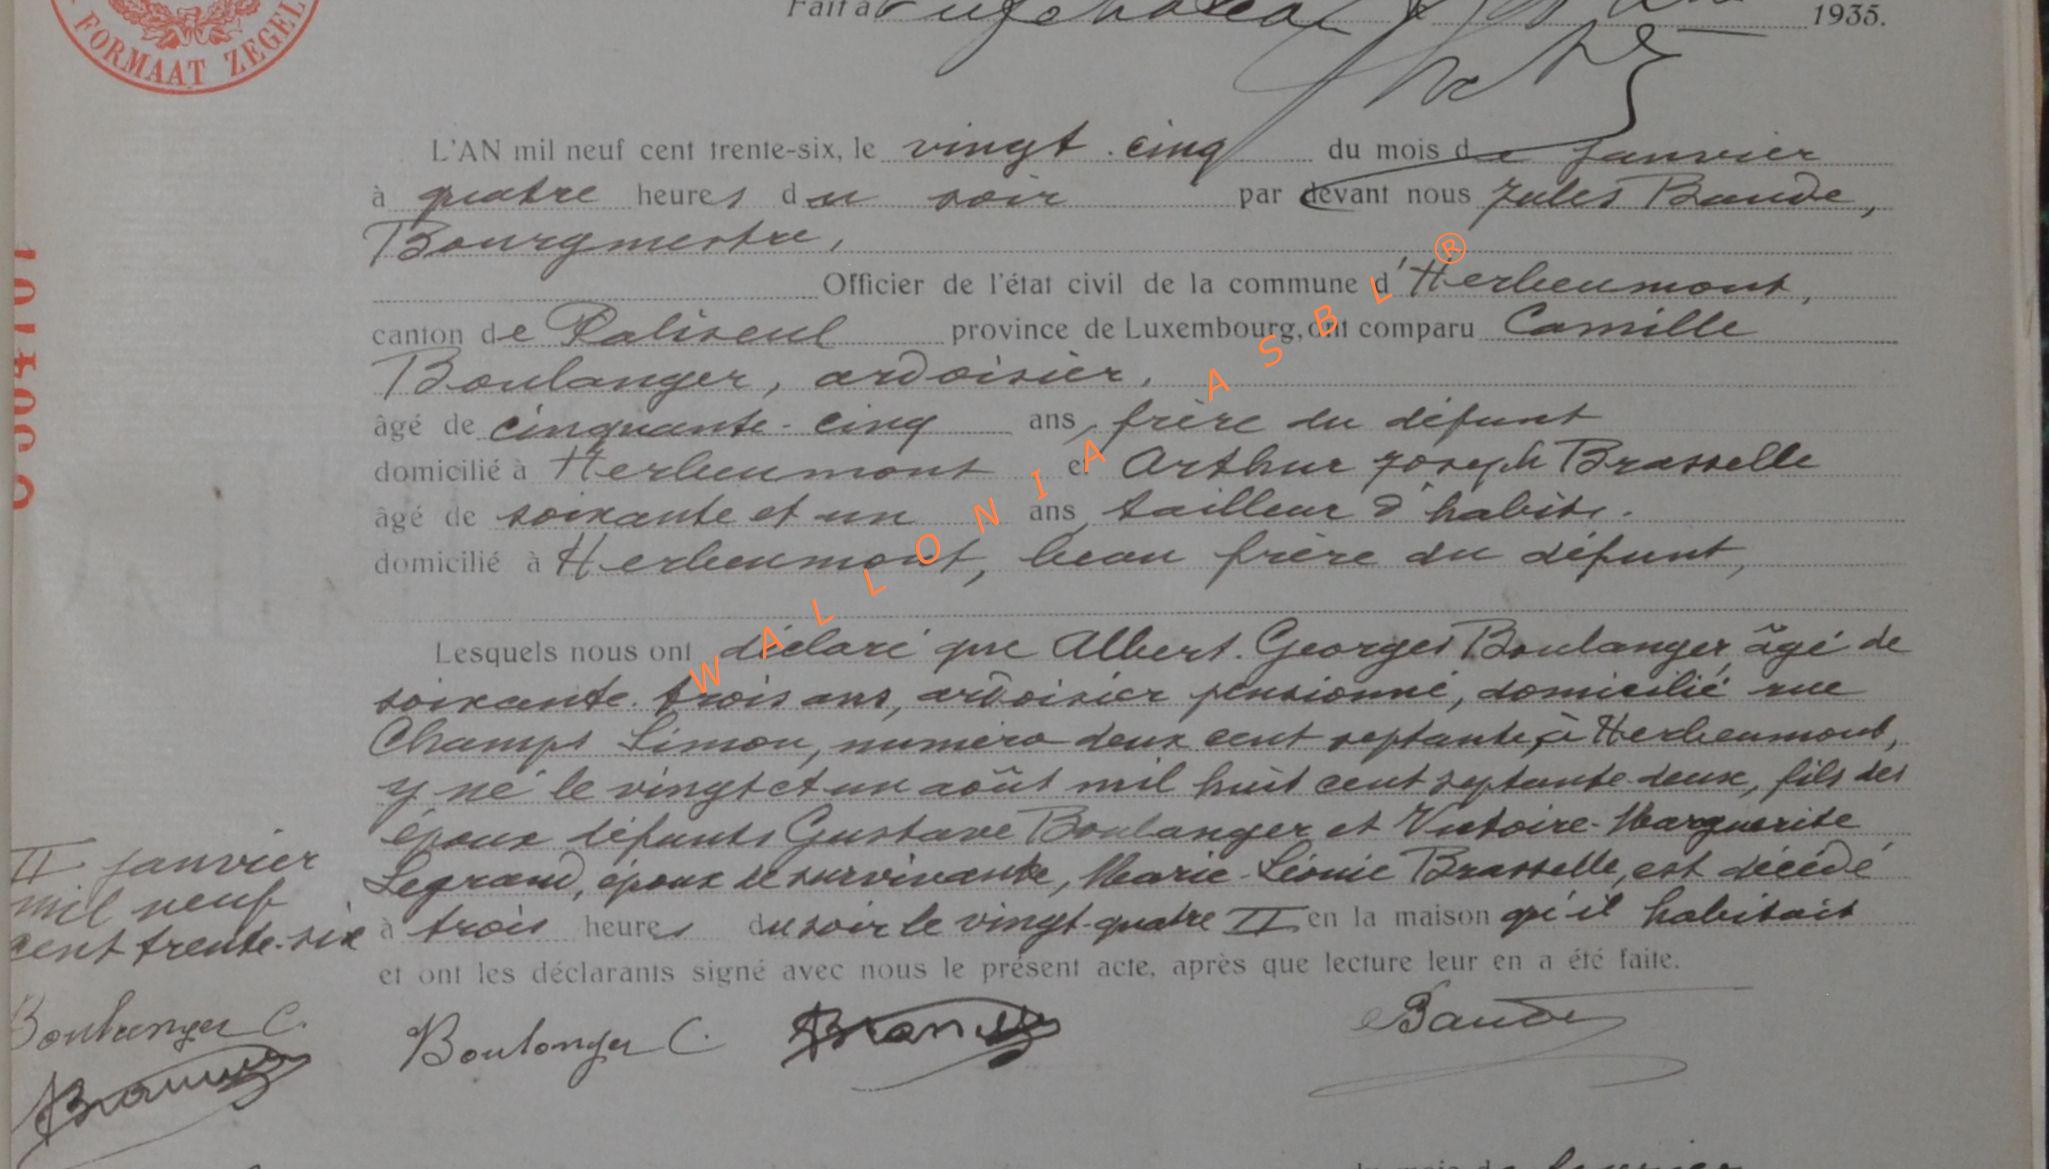 FORMAAT ZEGEL
Fait à 1935.
L'AN mil neuf cent trente-six, le vingt-cinq du mois de Janvier
à quatre heures du soir par devant nous Jules Baude,
Bourgmestre,
Officier de l'état civil de la commune d'Herbeumont,
canton de Paliseul province de Luxembourg, ont comparu Camille
Boulanger, ardoisier,
âgé de cinquante-cinq ans, frère du défunt
domicilié à Herbeumont et Arthur Joseph Brasselle
âgé de soixante et un ans, tailleur d'habits.
domicilié à Herbeumont, beau frère du défunt,
Lesquels nous ont déclaré que Albert-Georges Boulanger, âgé de
soixante-trois ans, ardoisier pensionné, domicilié rue
Champs Simon, numéro deux cent septante, à Herbeumont,
y né le vingt et un août mil huit cent septante-deux, fils des
époux défunts Gustave Boulanger et Victoire-Marguerite
Legrand, époux de survivante, Marie-Léonie Brasselle, est décédé
à trois heures du soir le vingt-quatre II en la maison qu'il habitait
et ont les déclarants signé avec nous le présent acte, après que lecture leur en a été faite.
II janvier
mil neuf
cent trente-six
Boulanger C.
Boulanger C. Baude
WALLONIA ASBL ®